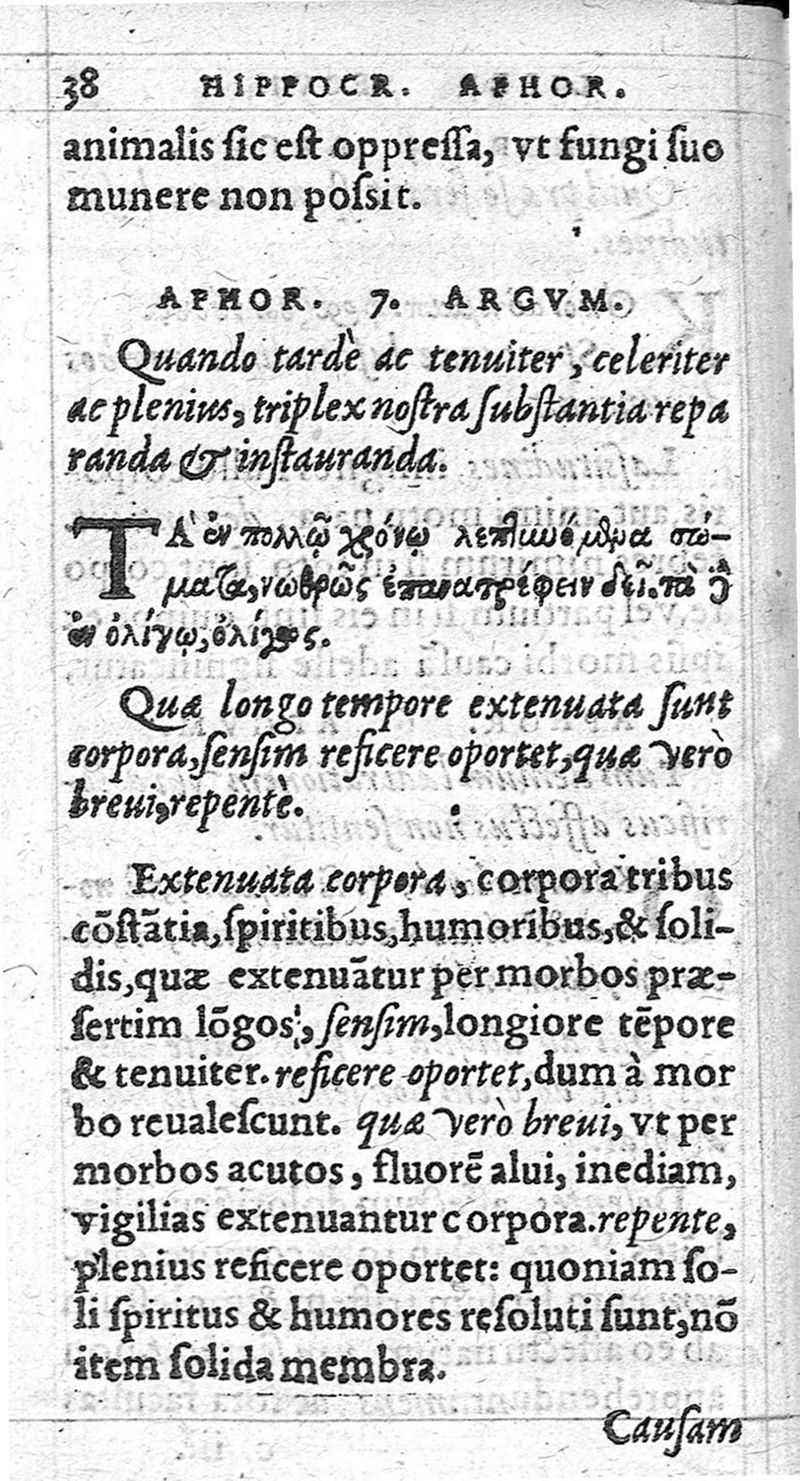 38 HIPPOCR. APHOR.
animalis ſic eſt oppreſſa, vt fungi ſuo
munere non poſsit.
APHOR. 7. ARGVM.
Quando tardè ac tenuiter, celeriter
ac plenius, triplex noſtra ſubſtantia repa
randa & inſtauranda.
ΤᾺ ἐν πολλῷ χρόνῳ λεπτυνόμενα σώ-
ματα, νωθρῶς ἐπανατρέφειν δεῖ. τὰ δὲ
ἐν ὀλίγῳ, ὀλίγως.
Quæ longo tempore extenuata ſunt
corpora, ſenſim reficere oportet, quæ verò
breui, repentè.
Extenuata corpora, corpora tribus
cōſtātia, ſpiritibus, humoribus, & ſoli-
dis, quæ extenuātur per morbos præ-
ſertim lōgos, ſenſim, longiore tēpore
& tenuiter. reficere oportet, dum à mor
bo reualeſcunt. quæ verò breui, vt per
morbos acutos, fluorē alui, inediam,
vigilias extenuantur corpora. repente,
plenius reficere oportet: quoniam ſo-
li ſpiritus & humores reſoluti ſunt, nō
item ſolida membra.
Cauſam